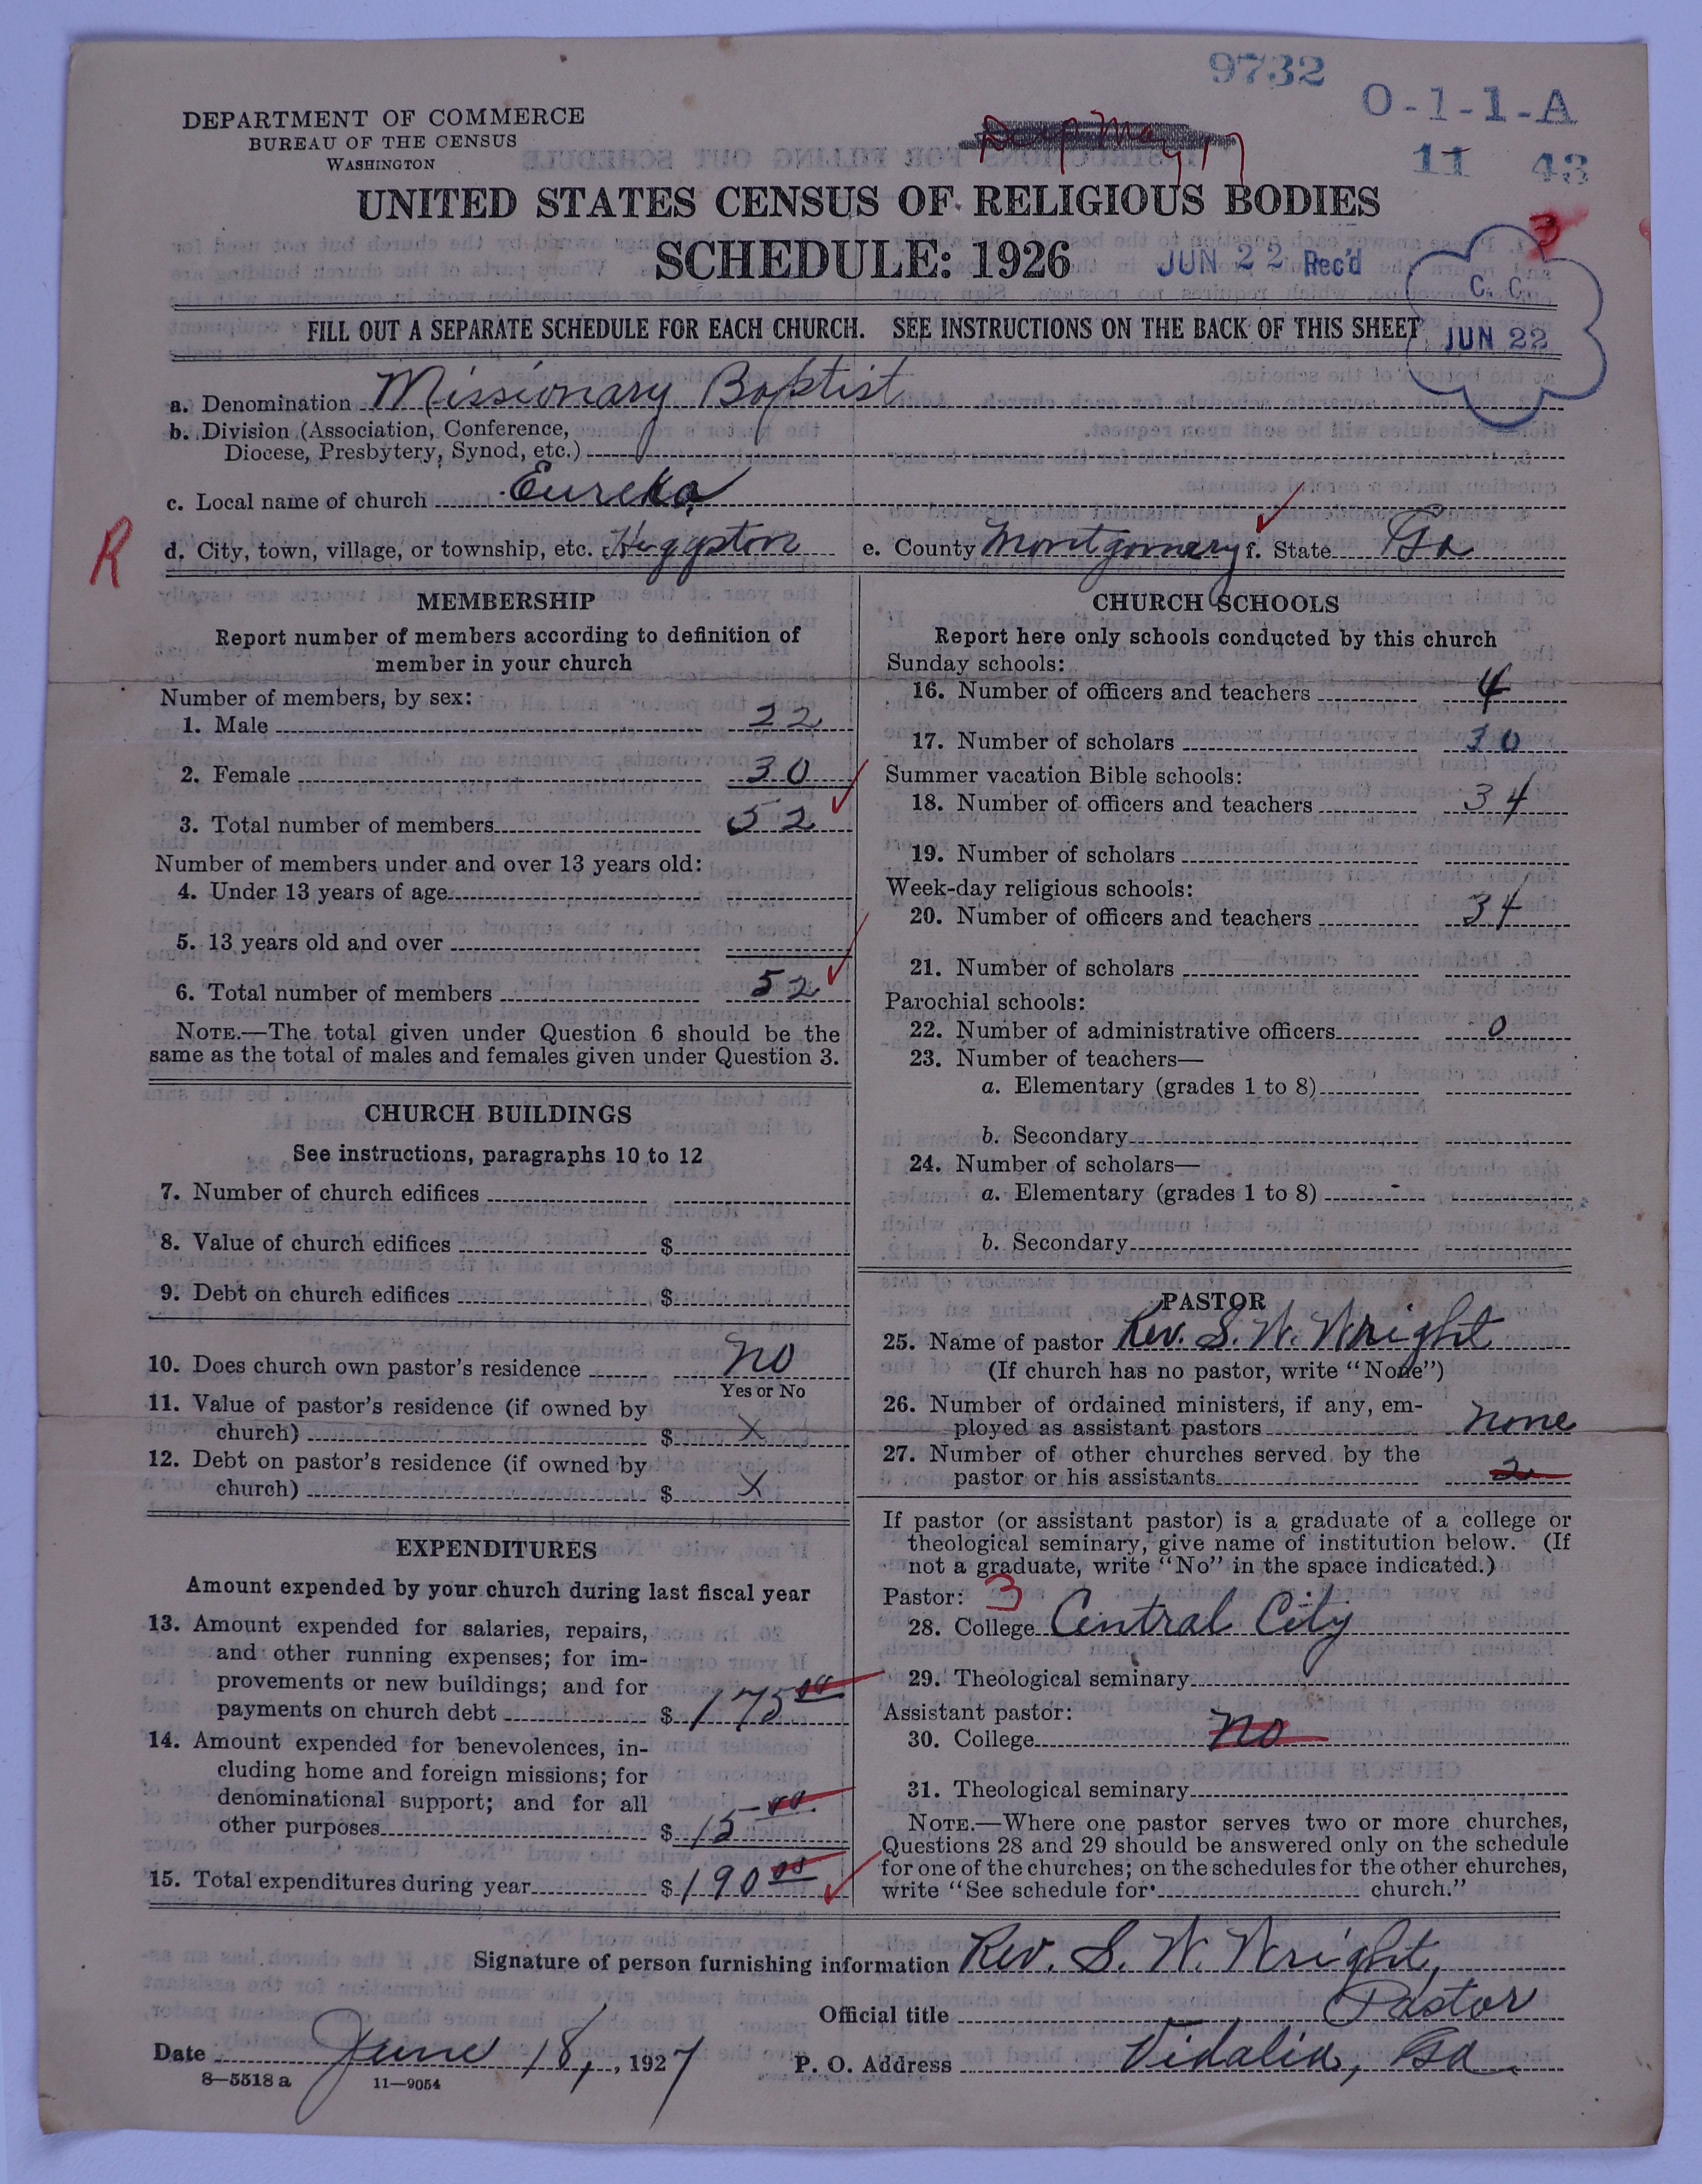 9732
O-1-1-A
11 43
DEPARTMENT OF COMMERCE
BUREAU OF THE CENSUS
WASHINGTON
UNITED STATES CENSUS OF RELIGIOUS BODIES
SCHEDULE: 1926
JUN 22 Rec'd
3
C. C.
JUN 22
FILL OUT A SEPARATE SCHEDULE FOR EACH CHURCH. SEE INSTRUCTIONS ON THE BACK OF THIS SHEET
a. Denomination Missionary Baptist
b. Division (Association, Conference,
Diocese, Presbytery, Synod, etc.)
c. Local name of church Eureka
R
d. City, town, village, or township, etc. Higgston e. County Montgomery f. State Ga
MEMBERSHIP
Report number of members according to definition of
member in your church
Number of members, by sex:
1. Male 22
2. Female 30
3. Total number of members 52
Number of members under and over 13 years old:
4. Under 13 years of age
5. 13 years old and over
6. Total number of members 52
NOTE.—The total given under Question 6 should be the
same as the total of males and females given under Question 3.
CHURCH BUILDINGS
See instructions, paragraphs 10 to 12
7. Number of church edifices
8. Value of church edifices $
9. Debt on church edifices $
10. Does church own pastor's residence no
Yes or No
11. Value of pastor's residence (if owned by
church) $ X
12. Debt on pastor's residence (if owned by
church) $ X
EXPENDITURES
Amount expended by your church during last fiscal year
13. Amount expended for salaries, repairs,
and other running expenses; for im-
provements or new buildings; and for
payments on church debt $ 175 00
14. Amount expended for benevolences, in-
cluding home and foreign missions; for
denominational support; and for all
other purposes $ 15-00
15. Total expenditures during year $ 190 00
CHURCH SCHOOLS
Report here only schools conducted by this church
Sunday schools:
16. Number of officers and teachers 4
17. Number of scholars 30
Summer vacation Bible schools:
18. Number of officers and teachers 34
19. Number of scholars
Week-day religious schools:
20. Number of officers and teachers 34
21. Number of scholars
Parochial schools:
22. Number of administrative officers 0
23. Number of teachers—
a. Elementary (grades 1 to 8)
b. Secondary
24. Number of scholars—
a. Elementary (grades 1 to 8)
b. Secondary
PASTOR
25. Name of pastor Rev. S. W. Wright
(If church has no pastor, write "None")
26. Number of ordained ministers, if any, em-
ployed as assistant pastors none
27. Number of other churches served by the
pastor or his assistants 2
If pastor (or assistant pastor) is a graduate of a college or
theological seminary, give name of institution below. (If
not a graduate, write "No" in the space indicated.)
Pastor: 3
28. College Central City
29. Theological seminary
Assistant pastor:
30. College no
31. Theological seminary
NOTE.—Where one pastor serves two or more churches,
Questions 28 and 29 should be answered only on the schedule
for one of the churches; on the schedules for the other churches,
write "See schedule for church."
Signature of person furnishing information Rev. S. W. Wright,
Official title Pastor
Date June 18, 1927 P. O. Address Vidalia, Ga.
8—5518 a 11—9054